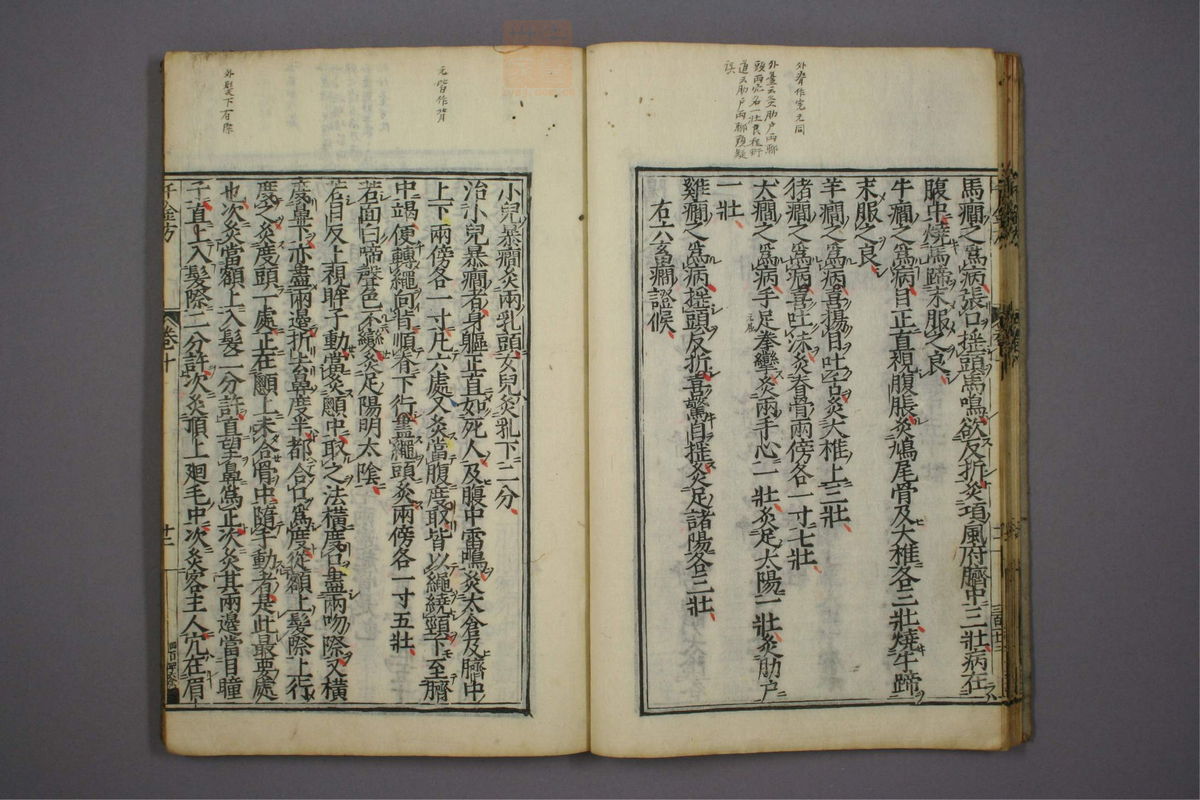 馬癇之爲病張口揺頭馬鳴欲反折灸項風府臍中三壯病在
腹中燒馬蹄末服之良
牛癇之爲病目正直視腹脹灸鳩尾骨及大椎各三壯燒牛蹄
末服之良
羊癇之爲病喜揚目吐舌灸大椎上三壯
猪癇之爲病喜吐沫灸脊骨兩傍各一寸七壯
犬癇之爲病手足拳攣灸兩手心一壯灸足太陽一壯灸肋戸
一壯
雞癇之爲病揺頭反折喜驚自揺灸足諸陽各三壯
右六畜癇證候
小兒暴癇灸兩乳頭女兒灸乳下二分
治小兒暴癇者身軀正直如死人及腹中雷鳴灸太倉及臍中
上下兩傍各一寸凡六處又灸當腹度取皆以繩繞頸下至臍
中竭便轉繩向背順脊下行盡繩頭灸兩傍各一寸五壯
若面白啼聲色不變灸足陽明太陰
若目反上視眸子動當灸顖中取之法横度口盡兩吻際又横
度鼻下亦盡兩邊折去鼻度半都合口爲度從額上髮際上行
度之灸度頭一處正在顖上未合骨中隨手動者是此最要處
也次灸當額上入髮二分許直望鼻爲正次灸其兩邊當目瞳
子直上入髮際二分許次灸頂上廻毛中次灸客主人穴在眉
千金方
卷十
外臺脊作完元同
元皆作背